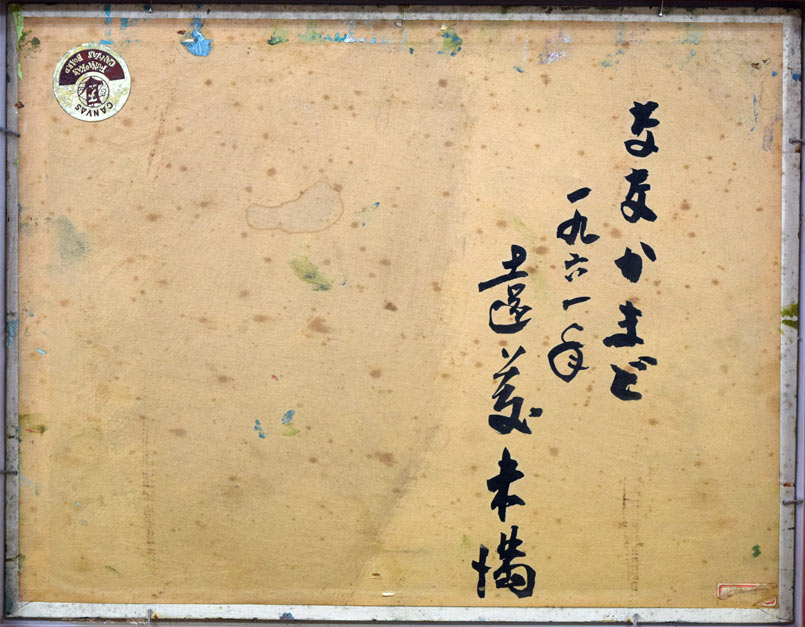 ななかまど
一九六一年
遠藤未満
FUNAOKAS
CANVAS BOARD
CANVAS